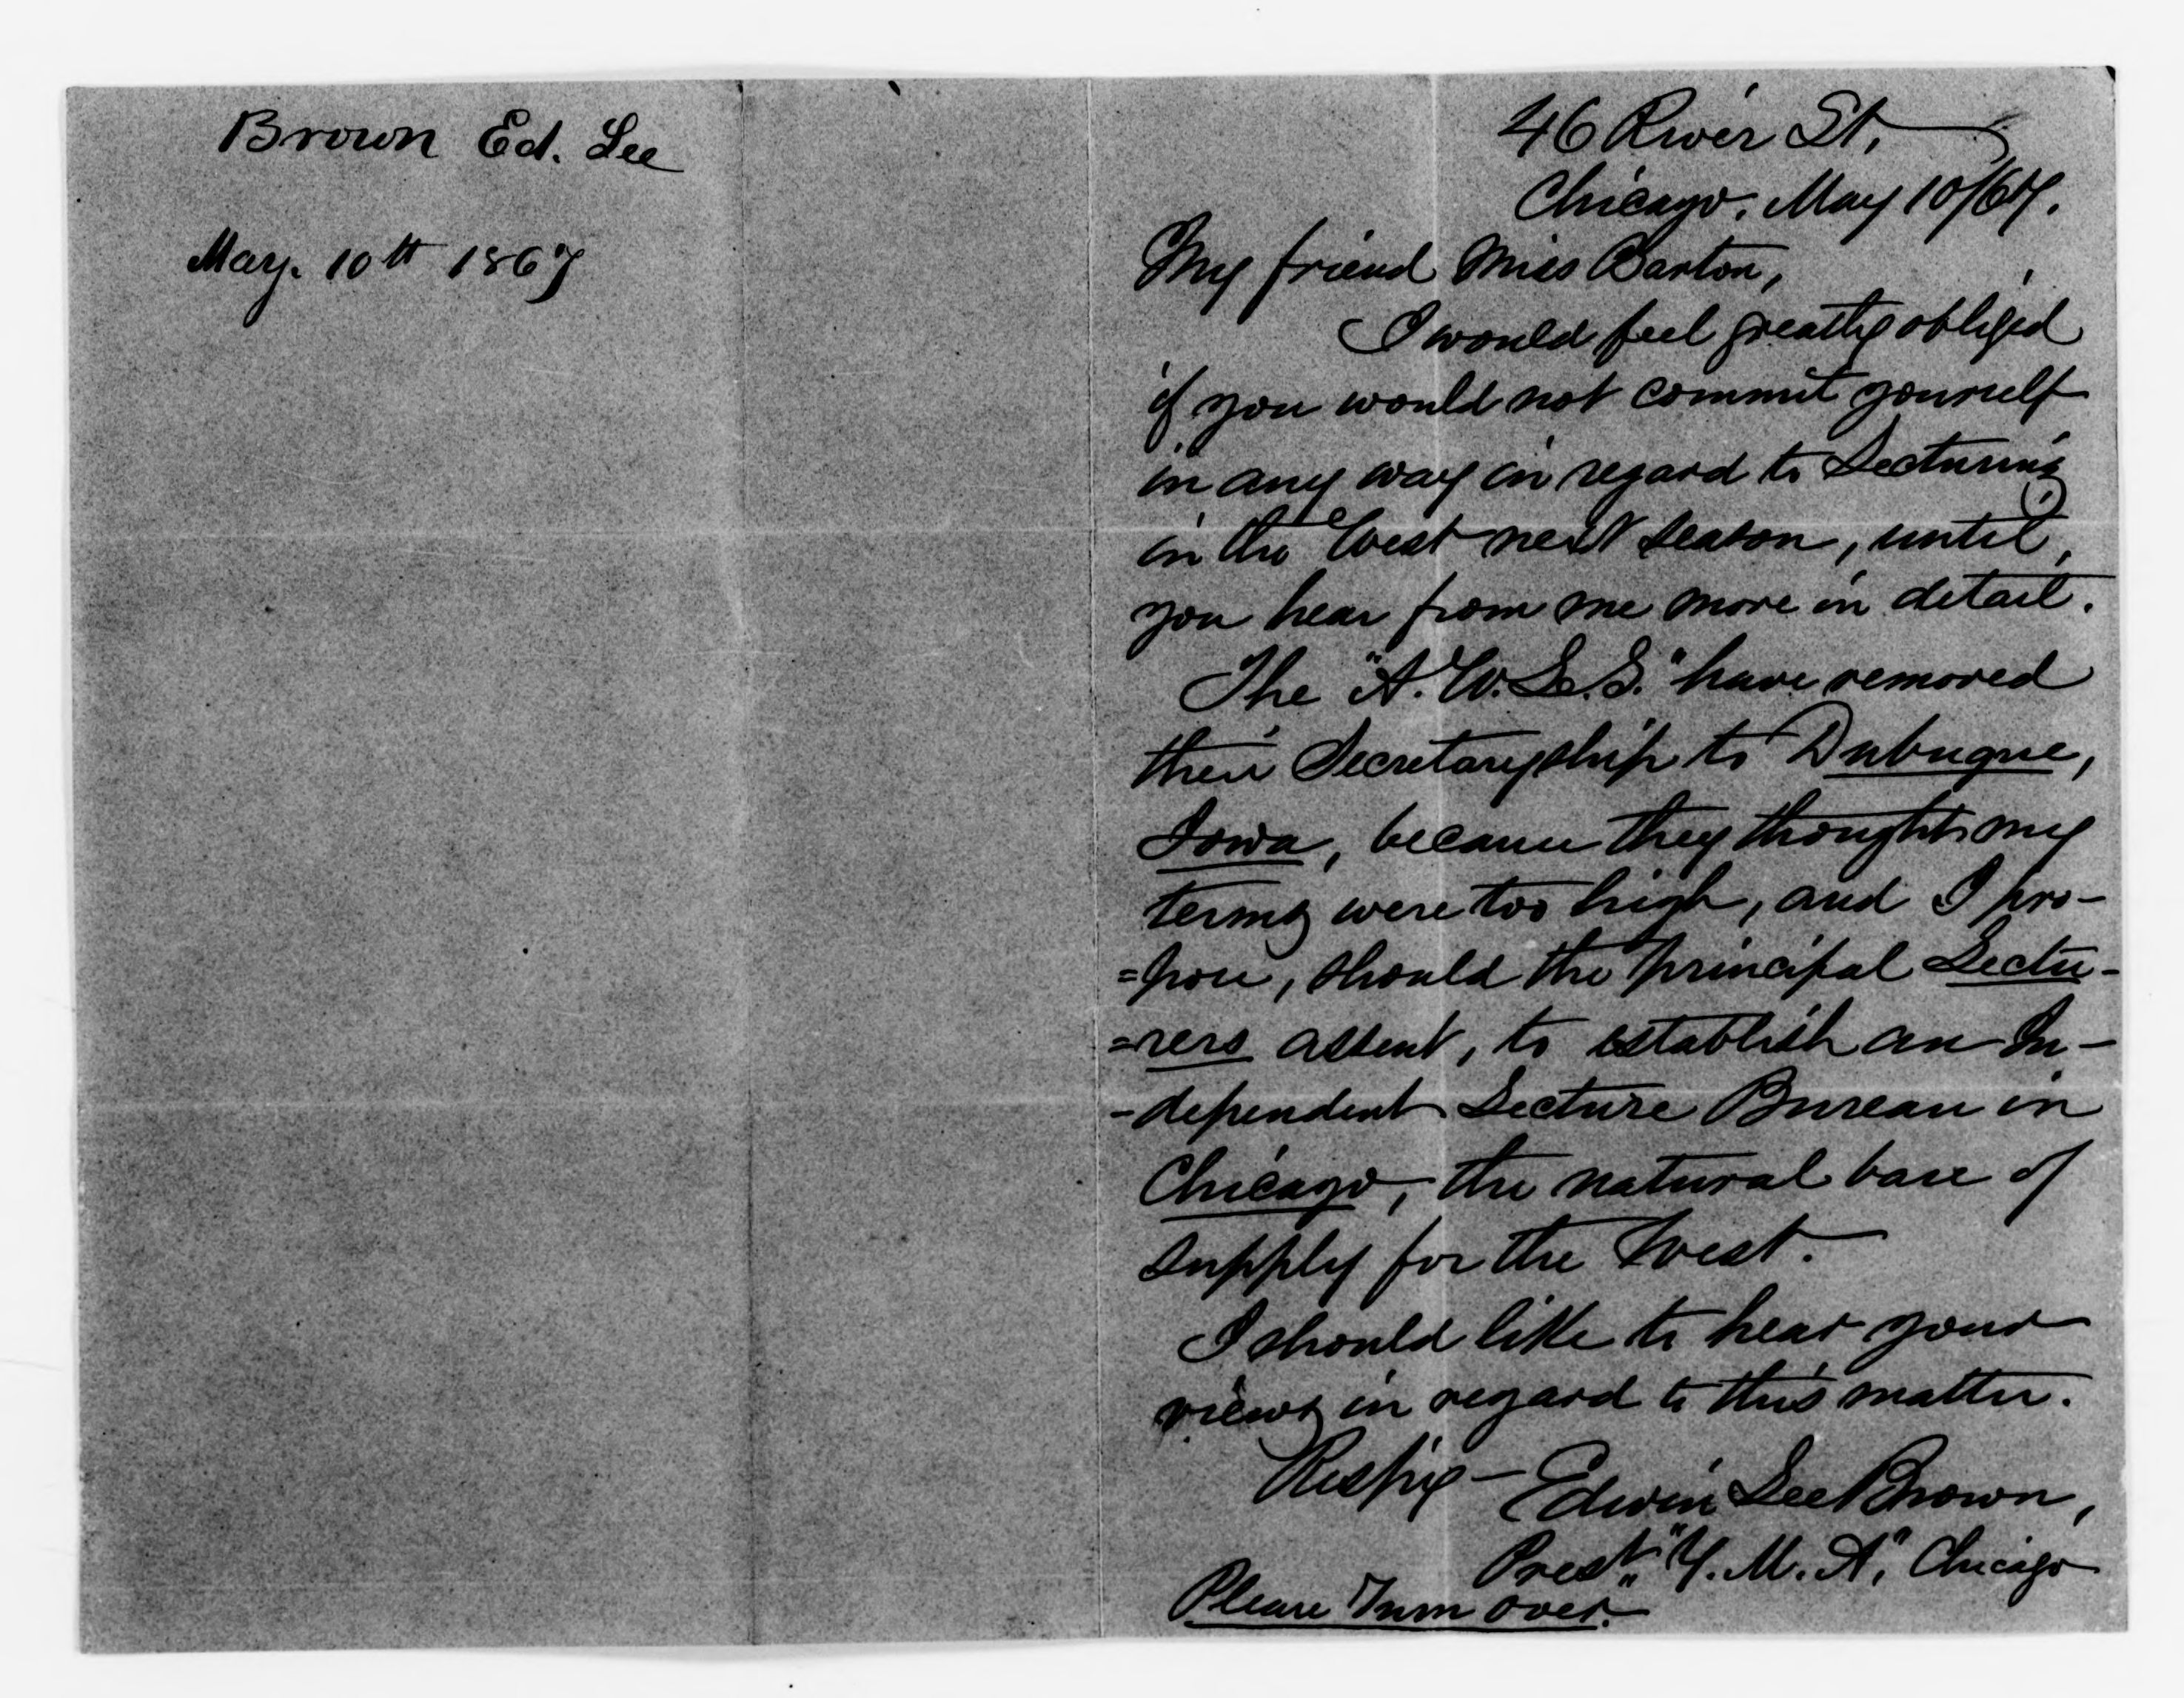 Brown Ed. Lee
May. 10th 1867
46 River St,
Chicago, May 10/67.
My friend Miss Barton,
I would feel greatly obliged
if you would not commit yourself
in any way in regard to Lecturing
in the West next season, until,
you hear from me more in detail.
The "A. W. L. S." have removed
their Secretaryship to Dubuque,
Iowa, because they thought my
terms were too high, and I pro-
=pose, should the principal Lectu-
=rers assent, to establish an In-
-dependent Lecture Bureau in
Chicago, the natural base of
supply for the West.
I should like to hear your
views in regard to this matter.
Respy- Edwin Lee Brown,
Prest. "Y. M. A", Chicago
Please Turn over.